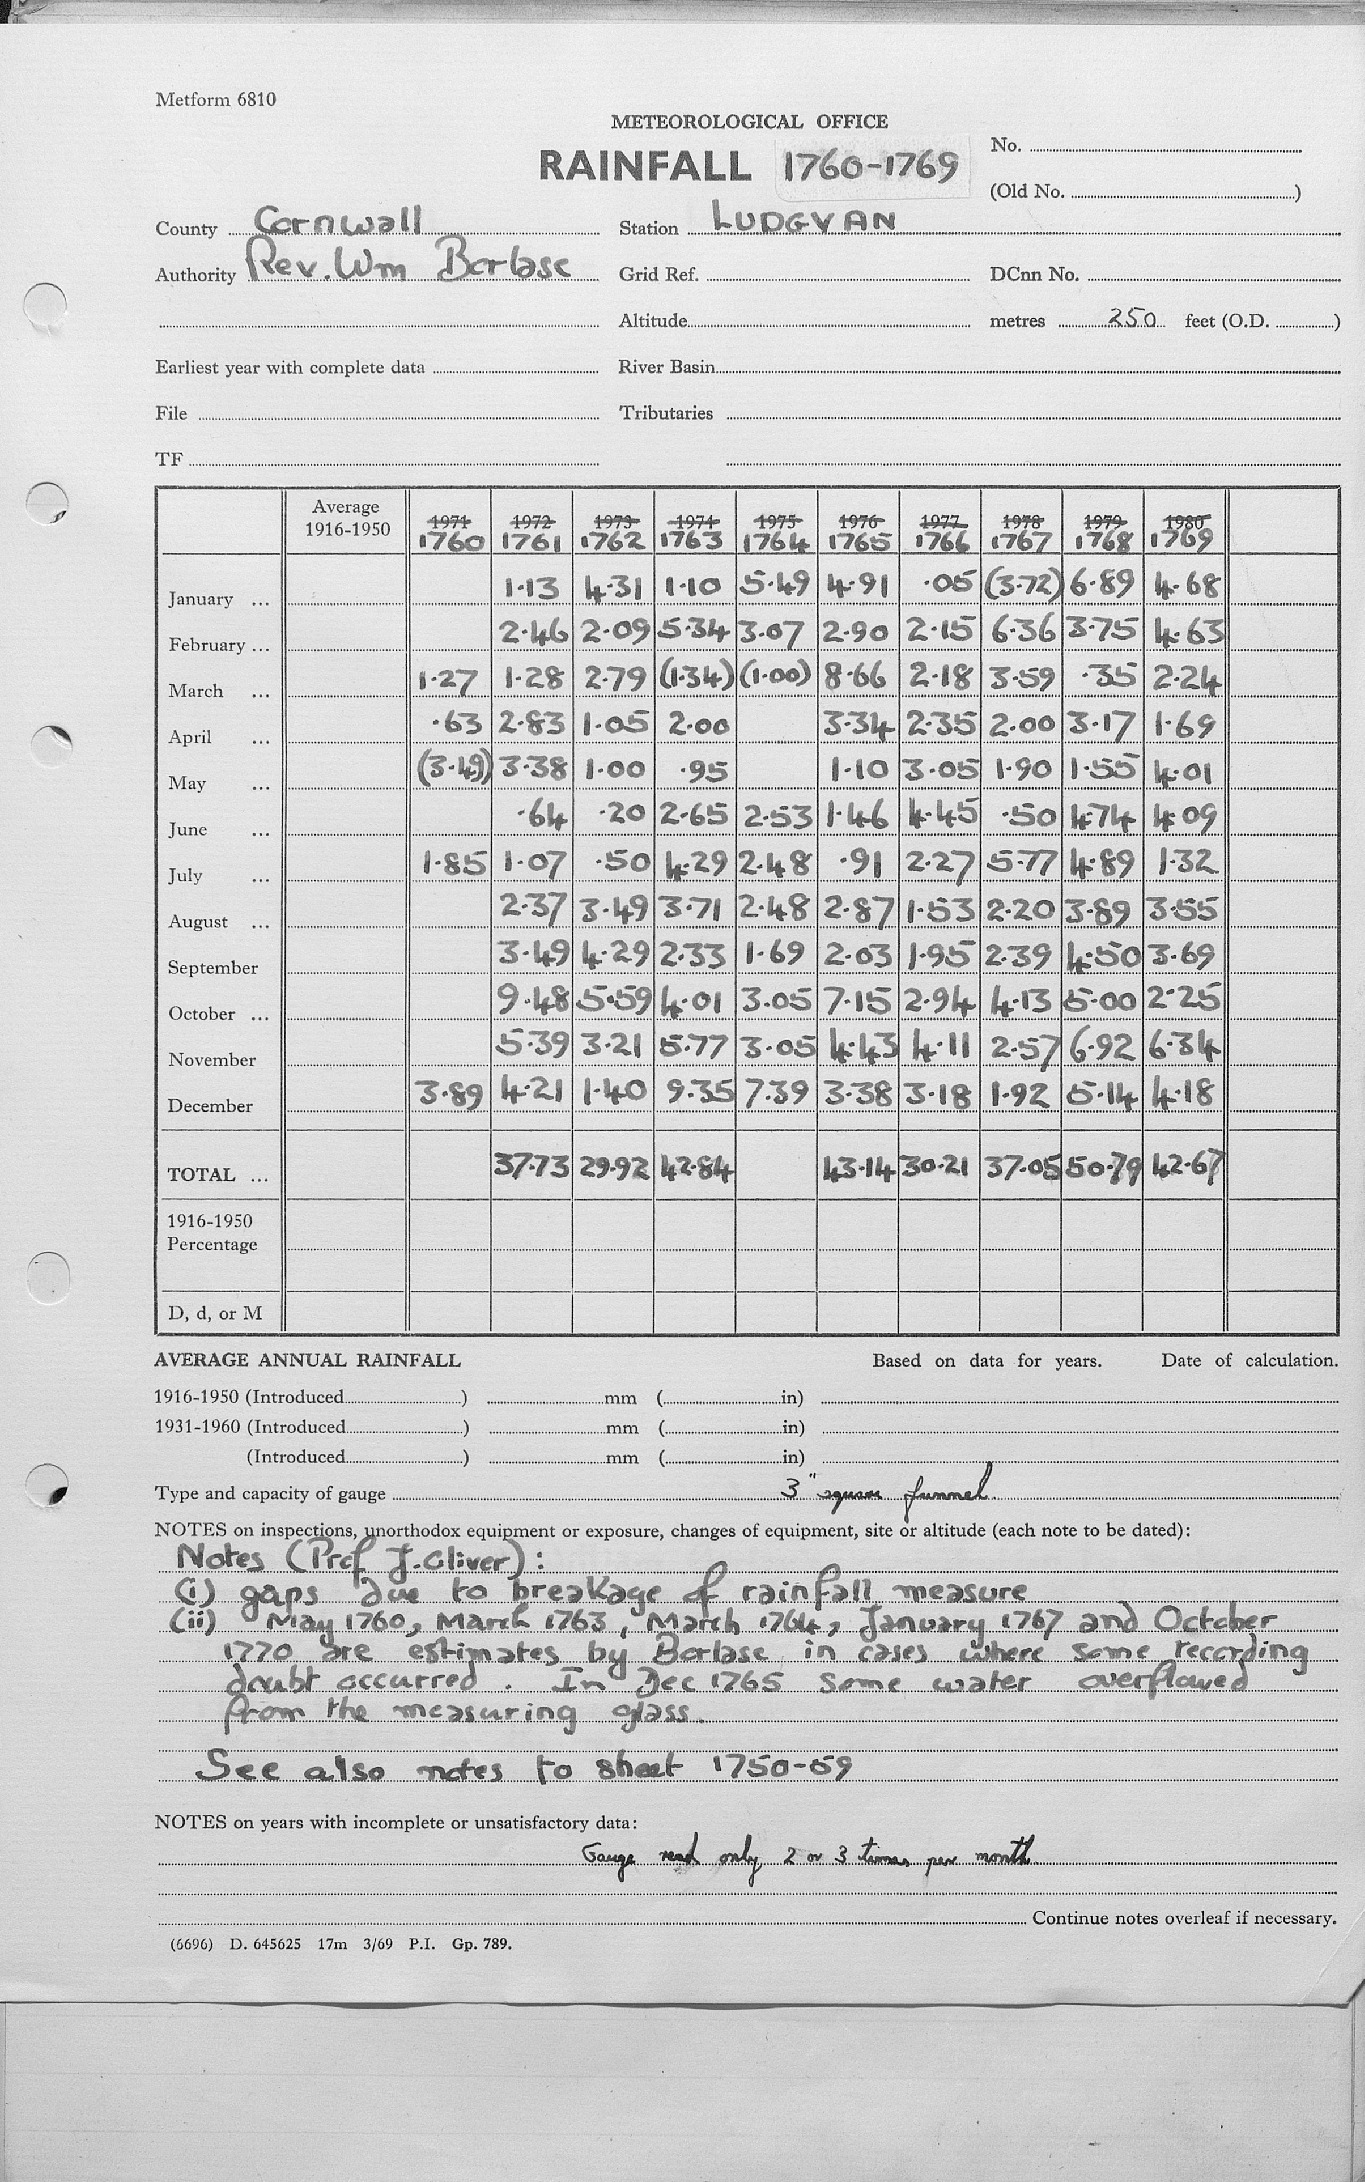 Metform 6810
METEOROLOGICAL OFFICE
RAINFALL 1760-1769
No.
(Old No. )
County Cornwall Station LUDGVAN
Authority Rev. Wm Borlase Grid Ref. DCnn No.
Altitude metres 250 feet (O.D. )
Earliest year with complete data River Basin
File Tributaries
TF
Average
1916-1950 1971 1972 1973 1974 1975 1976 1977 1978 1979 1980
1760 1761 1762 1763 1764 1765 1766 1767 1768 1769
January ... 1.13 4.31 1.10 5.49 4.91 .05 (3.72) 6.89 4.68
February ... 2.46 2.09 5.34 3.07 2.90 2.15 6.36 3.75 4.63
March ... 1.27 1.28 2.79 (1.34) (1.00) 8.66 2.18 3.59 .35 2.24
April ... .63 2.83 1.05 2.00 3.34 2.35 2.00 3.17 1.69
May ... (3.49) 3.38 1.00 .95 1.10 3.05 1.90 1.55 4.01
June ... .64 .20 2.65 2.53 1.46 4.45 .50 4.74 4.09
July ... 1.85 1.07 .50 4.29 2.48 .91 2.27 5.77 4.89 1.32
August ... 2.37 3.49 3.71 2.48 2.87 1.53 2.20 3.89 3.55
September 3.49 4.29 2.33 1.69 2.03 1.95 2.39 4.50 3.69
October ... 9.48 5.59 4.01 3.05 7.15 2.94 4.13 5.00 2.25
November 5.39 3.21 5.77 3.05 4.43 4.11 2.57 6.92 6.34
December 3.89 4.21 1.40 9.35 7.39 3.38 3.18 1.92 5.14 4.18
TOTAL ... 37.73 29.92 42.84 43.14 30.21 37.05 50.79 42.67
1916-1950
Percentage
D, d, or M
AVERAGE ANNUAL RAINFALL Based on data for years. Date of calculation.
1916-1950 (Introduced ) mm ( in)
1931-1960 (Introduced ) mm ( in)
(Introduced ) mm ( in)
Type and capacity of gauge 3" square funnel.
NOTES on inspections, unorthodox equipment or exposure, changes of equipment, site or altitude (each note to be dated):
Notes (Prof J. Oliver):
(i) gaps due to breakage of rainfall measure
(ii) May 1760, March 1763, March 1764, January 1767 and October
1770 are estimates by Borlase in cases where some recording
doubt occurred. In Dec 1765 some water overflowed
from the measuring glass.
See also notes to sheet 1750-59
NOTES on years with incomplete or unsatisfactory data:
Gauge read only 2 or 3 times per month
Continue notes overleaf if necessary.
(6696) D. 645625 17m 3/69 P.I. Gp. 789.